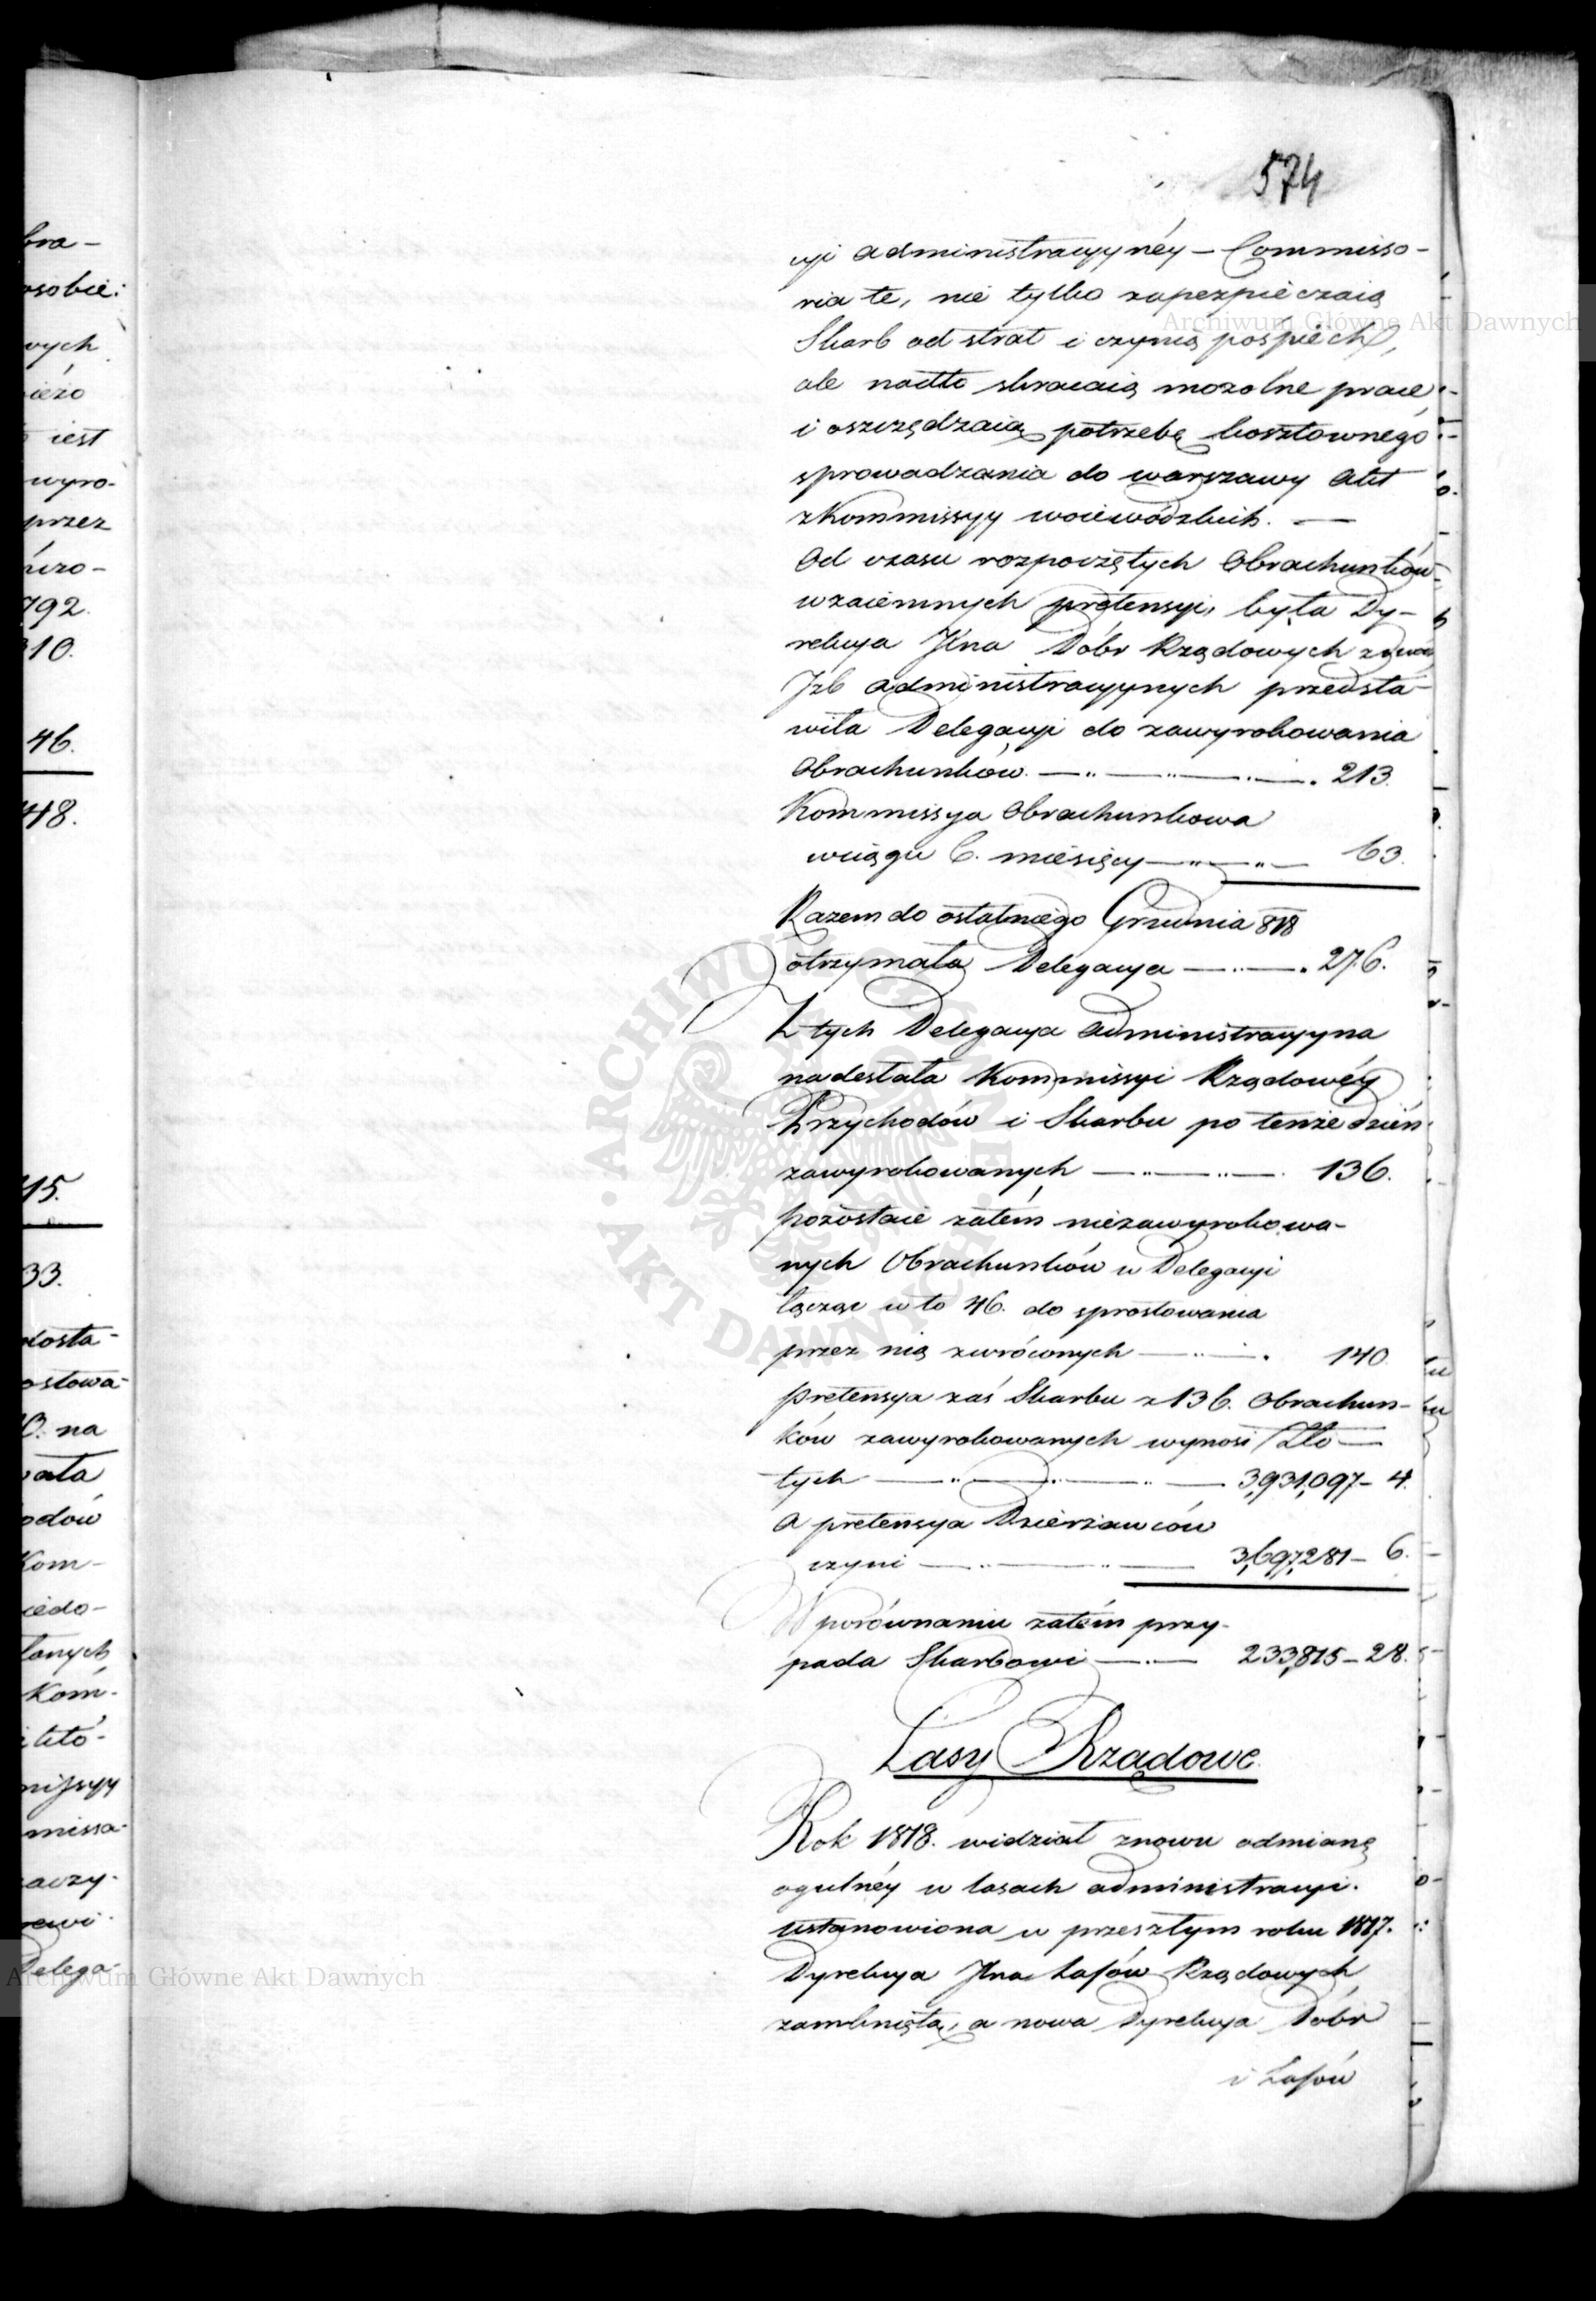 574
cyi administracyynéy – Commisso-
ria te, nie tylko zapezpieczaią
Skarb od strat i czynią pospiech,
ale nadto skracaią mozolne prace
i oszczędzaią potrzebę kosztownego
sprowadzania do warszawy Akt
z Kommissyy woiewódzkich. —
Od czasu rozpoczętych Obrachunków
wzaiemnych pretensyi, była Dy-
rekcya Jlna Dóbr Rządowych
Jzb administracyynych przedsta-
wiła Delegacyi do zawyrokowania
Obrachunków — „ — „ — „ — 213.
Kommissya Obrachunkowa
wciągu 6. miesięcy — „ — „ — 63.
Razem do ostatniego Grudnia 818
otrzymała Delegacya — „ — 276.
Z tych Delegacya administracyyna
nadesłała Kommissyi Rządowéy
Przychodów i Skarbu po tenże dzień
zawyrokowanych — „ — „ — 136.
pozostaie zatém niezawyrokowa-
nych Obrachunków w Delegacyi
łącząc w to 46. do sprostowania
przez nią zwróconych — „ — 140.
pretensya zaś Skarbu z 136. Obrachun-
ków zawyrokowanych wynosi Zło-
tych — „ — „ — „ — 3,931,097 – 4.
a pretensya Dzierżawców
czyni — „ — „ — 3,697,281 – 6.
W porównaniu zatém przy-
pada Skarbowi — „ — 233,815 – 28.
Lasy Rządowe.
Rok 1818. widział znowu odmianę
ogulnéy w lasach administracyi.
Ustanowiona w przeszłym roku 1817.
Dyrekcya Jlna Lasów Rządowych
zamknięta, a nowa Dyrekcya Dóbr
i Lasów
bra-
osobie:
wych
iest
wyro-
przez
792.
310.
46.
48.
45.
33.
dosta-
ostowa-
0. na
wała
odów
Kom-
iedo-
łanych
Kom-
któ-
missyy
missa-
aczy-
Delega-
Archiwum Główne Akt Dawnych
ARCHIWUM GŁÓWNE · AKT DAWNYCH ·
Archiwum Główne Akt Dawnych